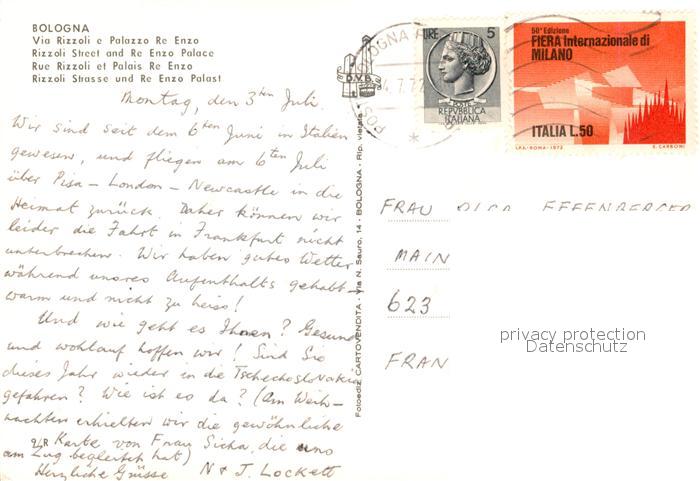 BOLOGNA
Via Rizzoli e Palazzo Re Enzo
Rizzoli Street and Re Enzo Palace
Rue Rizzoli et Palais Re Enzo
Rizzoli Strasse und Re Enzo Palast
Montag, den 3ten Juli.
Wir sind seit dem 6ten Juni in Italien
gewesen, und fliegen am 6ten Juli
über Pisa – London – Newcastle in die
Heimat zurück. Daher können wir
leider die Fahrt in Frankfurt nicht
unterbrechen. Wir haben gutes Wetter
während unsres Aufenthalts gehabt –
warm und nicht zu heiss!
Und wie geht es Ihnen? Gesund
und wohlauf hoffen wir! Sind Sie
dieses Jahr wieder in die Tschechoslovakie
gefahren? Wie ist es da? (Am Weih-
nachten erhielten wir die gewöhnliche
Karte von Frau Sicha, die uns
am Zug begleitet hat)
Herzliche Grüsse N & J. Lockett
D.V.B.
Fotoediz. CARTOVENDITA - Via N. Sauro, 14 - BOLOGNA - Rip. vietata
BOLOGNA
POS
LIRE 5
POSTE
REPVBBLICA
ITALIANA
50a Edizione
FIERA Internazionale di
MILANO
ITALIA L.50
I.P.S.-ROMA-1972 E. CARBONI
FRAU OLGA EFFENBERGER
MAIN
623
FRAN
privacy protection
Datenschutz